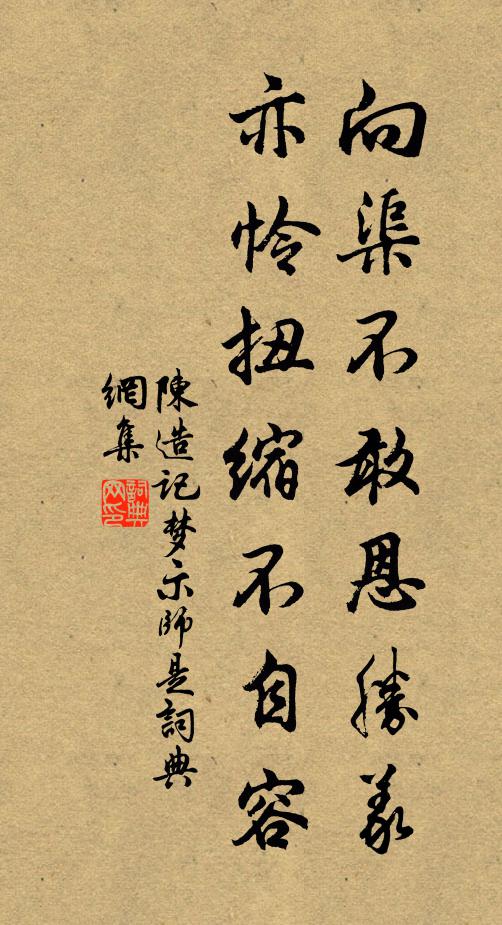 向渠不敢恩勝義
亦怜扭缩不自容
陳造记梦示師是詞典
網集
詞典网印